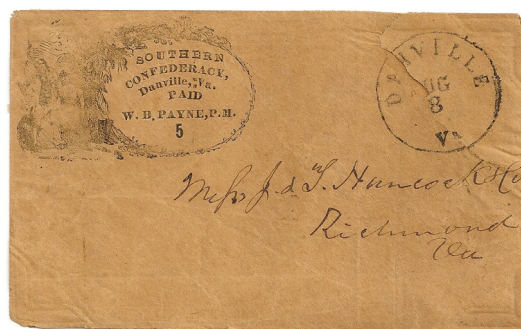 SOUTHERN
CONFEDERACY,
Danville, Va.
PAID
W. B. PAYNE, P.M.
5
DANVILLE
AUG
8
Va
Mess J. & T. Hancock & Co
Richmond
Va